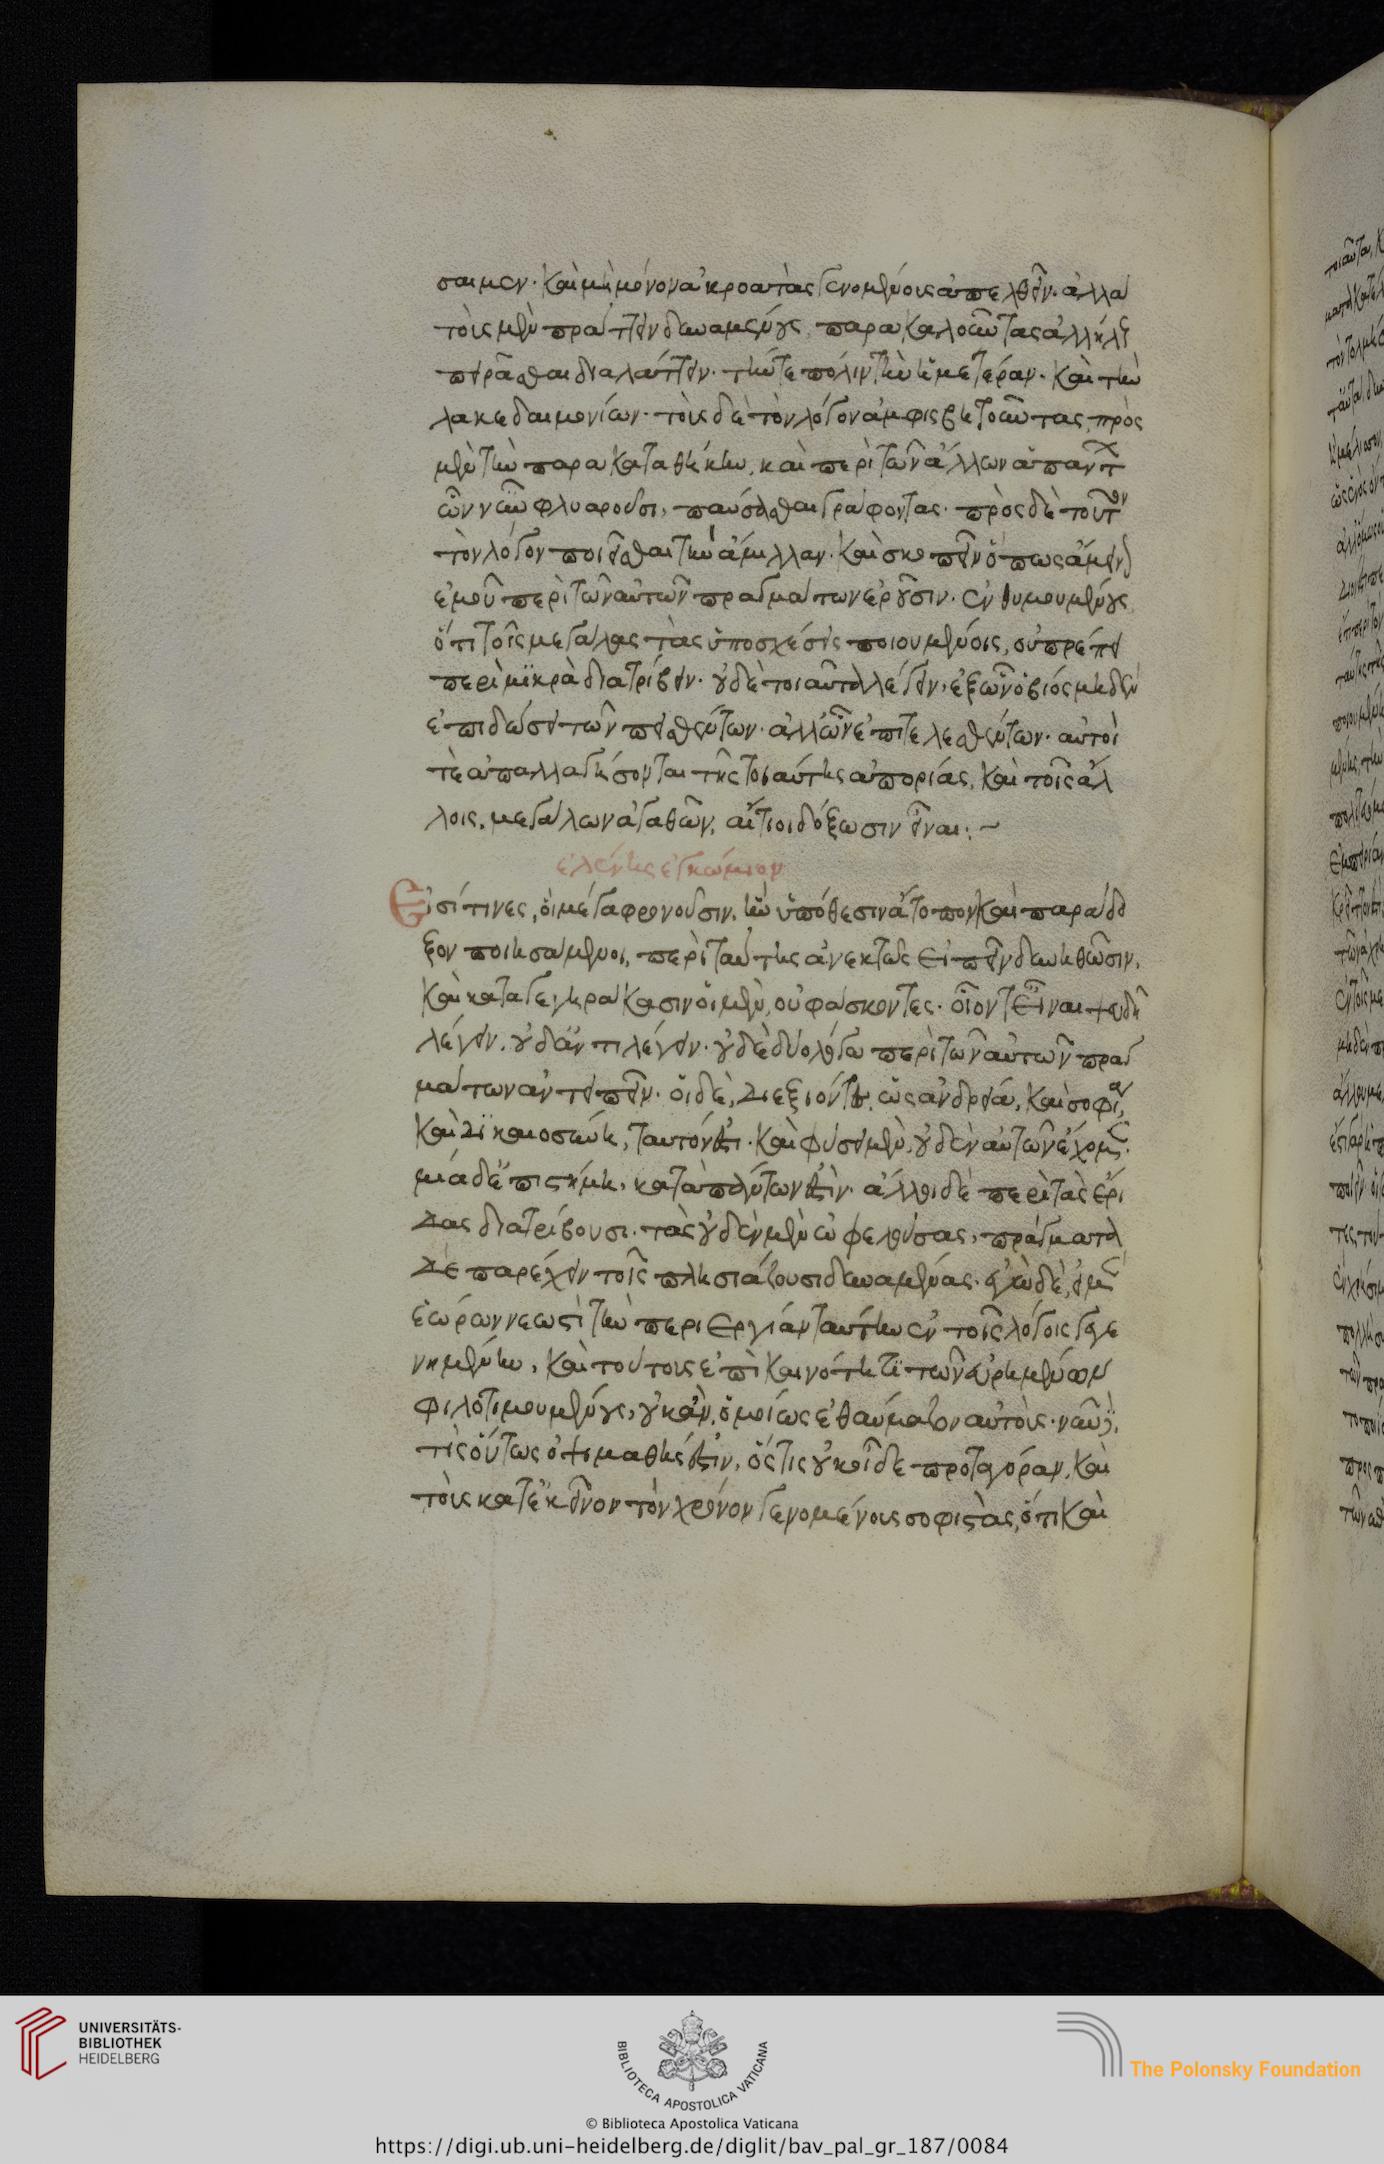 σαιμεν· καὶ μὴ μόνον ἀκροατὰς γενομένους ἀπελθεῖν· ἀλλὰ
τοὺς μὲν πράττειν δυναμένους, παρακαλοῦντας ἀλλήλους
πειρᾶσθαι διαλάττειν· τήν τε πόλιν τὴν ἡμετέραν· καὶ τὴν
λακεδαιμονίων· τοὺς δὲ τὸν λόγον ἀμφισβητοῦντας, πρὸς
μὲν τὴν παρακαταθήκην, καὶ περὶ τῶν ἄλλων ἁπάντων
ὧν νῦν φλυαροῦσι, παύσασθαι γράφοντας· πρὸς δὲ τοῦτον
τὸν λόγον ποιεῖσθαι τὴν ἅμιλλαν· καὶ σκοπεῖν ὅπως ἄμεινον
ἐμοῦ περὶ τῶν αὐτῶν πραγμάτων ἐροῦσιν· ἐνθυμουμένους
ὅτι τοῖς μεγάλας τὰς ὑποσχέσεις ποιουμένοις, οὐ πρέπει
περὶ μικρὰ διατρίβειν· οὐδὲ τοιαῦτα λέγειν, ἐξ ὧν ὁ βίος μηδὲν
ἐπιδώσει τῶν πεισθέντων· ἀλλ' ὧν ἐπιτελεσθέντων· αὐτοί
τε ἀπαλλαγήσονται τῆς τοιαύτης ἀπορίας, καὶ τοῖς ἄλ
λοις, μεγάλων ἀγαθῶν, αἴτιοι δόξωσιν εἶναι: ~
ἑλένης ἐγκώμιον
Εἰσί τινες, οἳ μέγα φρονοῦσιν, ἢν ὑπόθεσιν ἄτοπον καὶ παράδο
ξον ποιησάμενοι, περὶ ταύτης ἀνεκτῶς εἰπεῖν δυνηθῶσιν,
καὶ καταγεγηράκασιν οἱ μὲν, οὐ φάσκοντες· οἷόν τ' εἶναι ψευδῆ
λέγειν, οὐδ' ἀντιλέγειν· οὐδὲ δύο λόγω περὶ τῶν αὐτῶν πραγ
μάτων ἀντειπεῖν· οἱ δὲ, διεξιόντες, ὡς ἀνδρεία, καὶ σοφία,
καὶ δικαιοσύνη, ταυτόν ἐστι· καὶ φύσει μὲν, οὐδὲν αὐτῶν ἔχομεν·
μία δ' ἐπιστήμη, κατὰ πάντων ἐστὶν· ἄλλοι δὲ περὶ τὰς ἔρι
δας διατρίβουσι· τὰς οὐδὲν μὲν ὠφελούσας, πράγματα
δὲ παρέχειν τοῖς πλησιάζουσι δυναμένας· ἐγὼ δὲ, εἰ μὲν
ἑώρων νεωστὶ τὴν περιεργίαν ταύτην ἐν τοῖς λόγοις γεγε
νημένην, καὶ τούτοις ἐπὶ καινότητι τῶν εὑρημένων
φιλοτιμουμένους, οὐκ ἂν, ὁμοίως ἐθαύμαζον αὐτούς· νῦν δὲ,
τίς οὕτως ὀψιμαθής ἐστιν, ὅστις οὐκ οἶδε πρωταγόραν, καὶ
τοὺς κατ' ἐκεῖνον τὸν χρόνον γενομένους σοφιστὰς, ὅτι καὶ
UNIVERSITÄTS-
BIBLIOTHEK
HEIDELBERG
BIBLIOTECA APOSTOLICA VATICANA
The Polonsky Foundation
© Biblioteca Apostolica Vaticana
https://digi.ub.uni-heidelberg.de/diglit/bav_pal_gr_187/0084